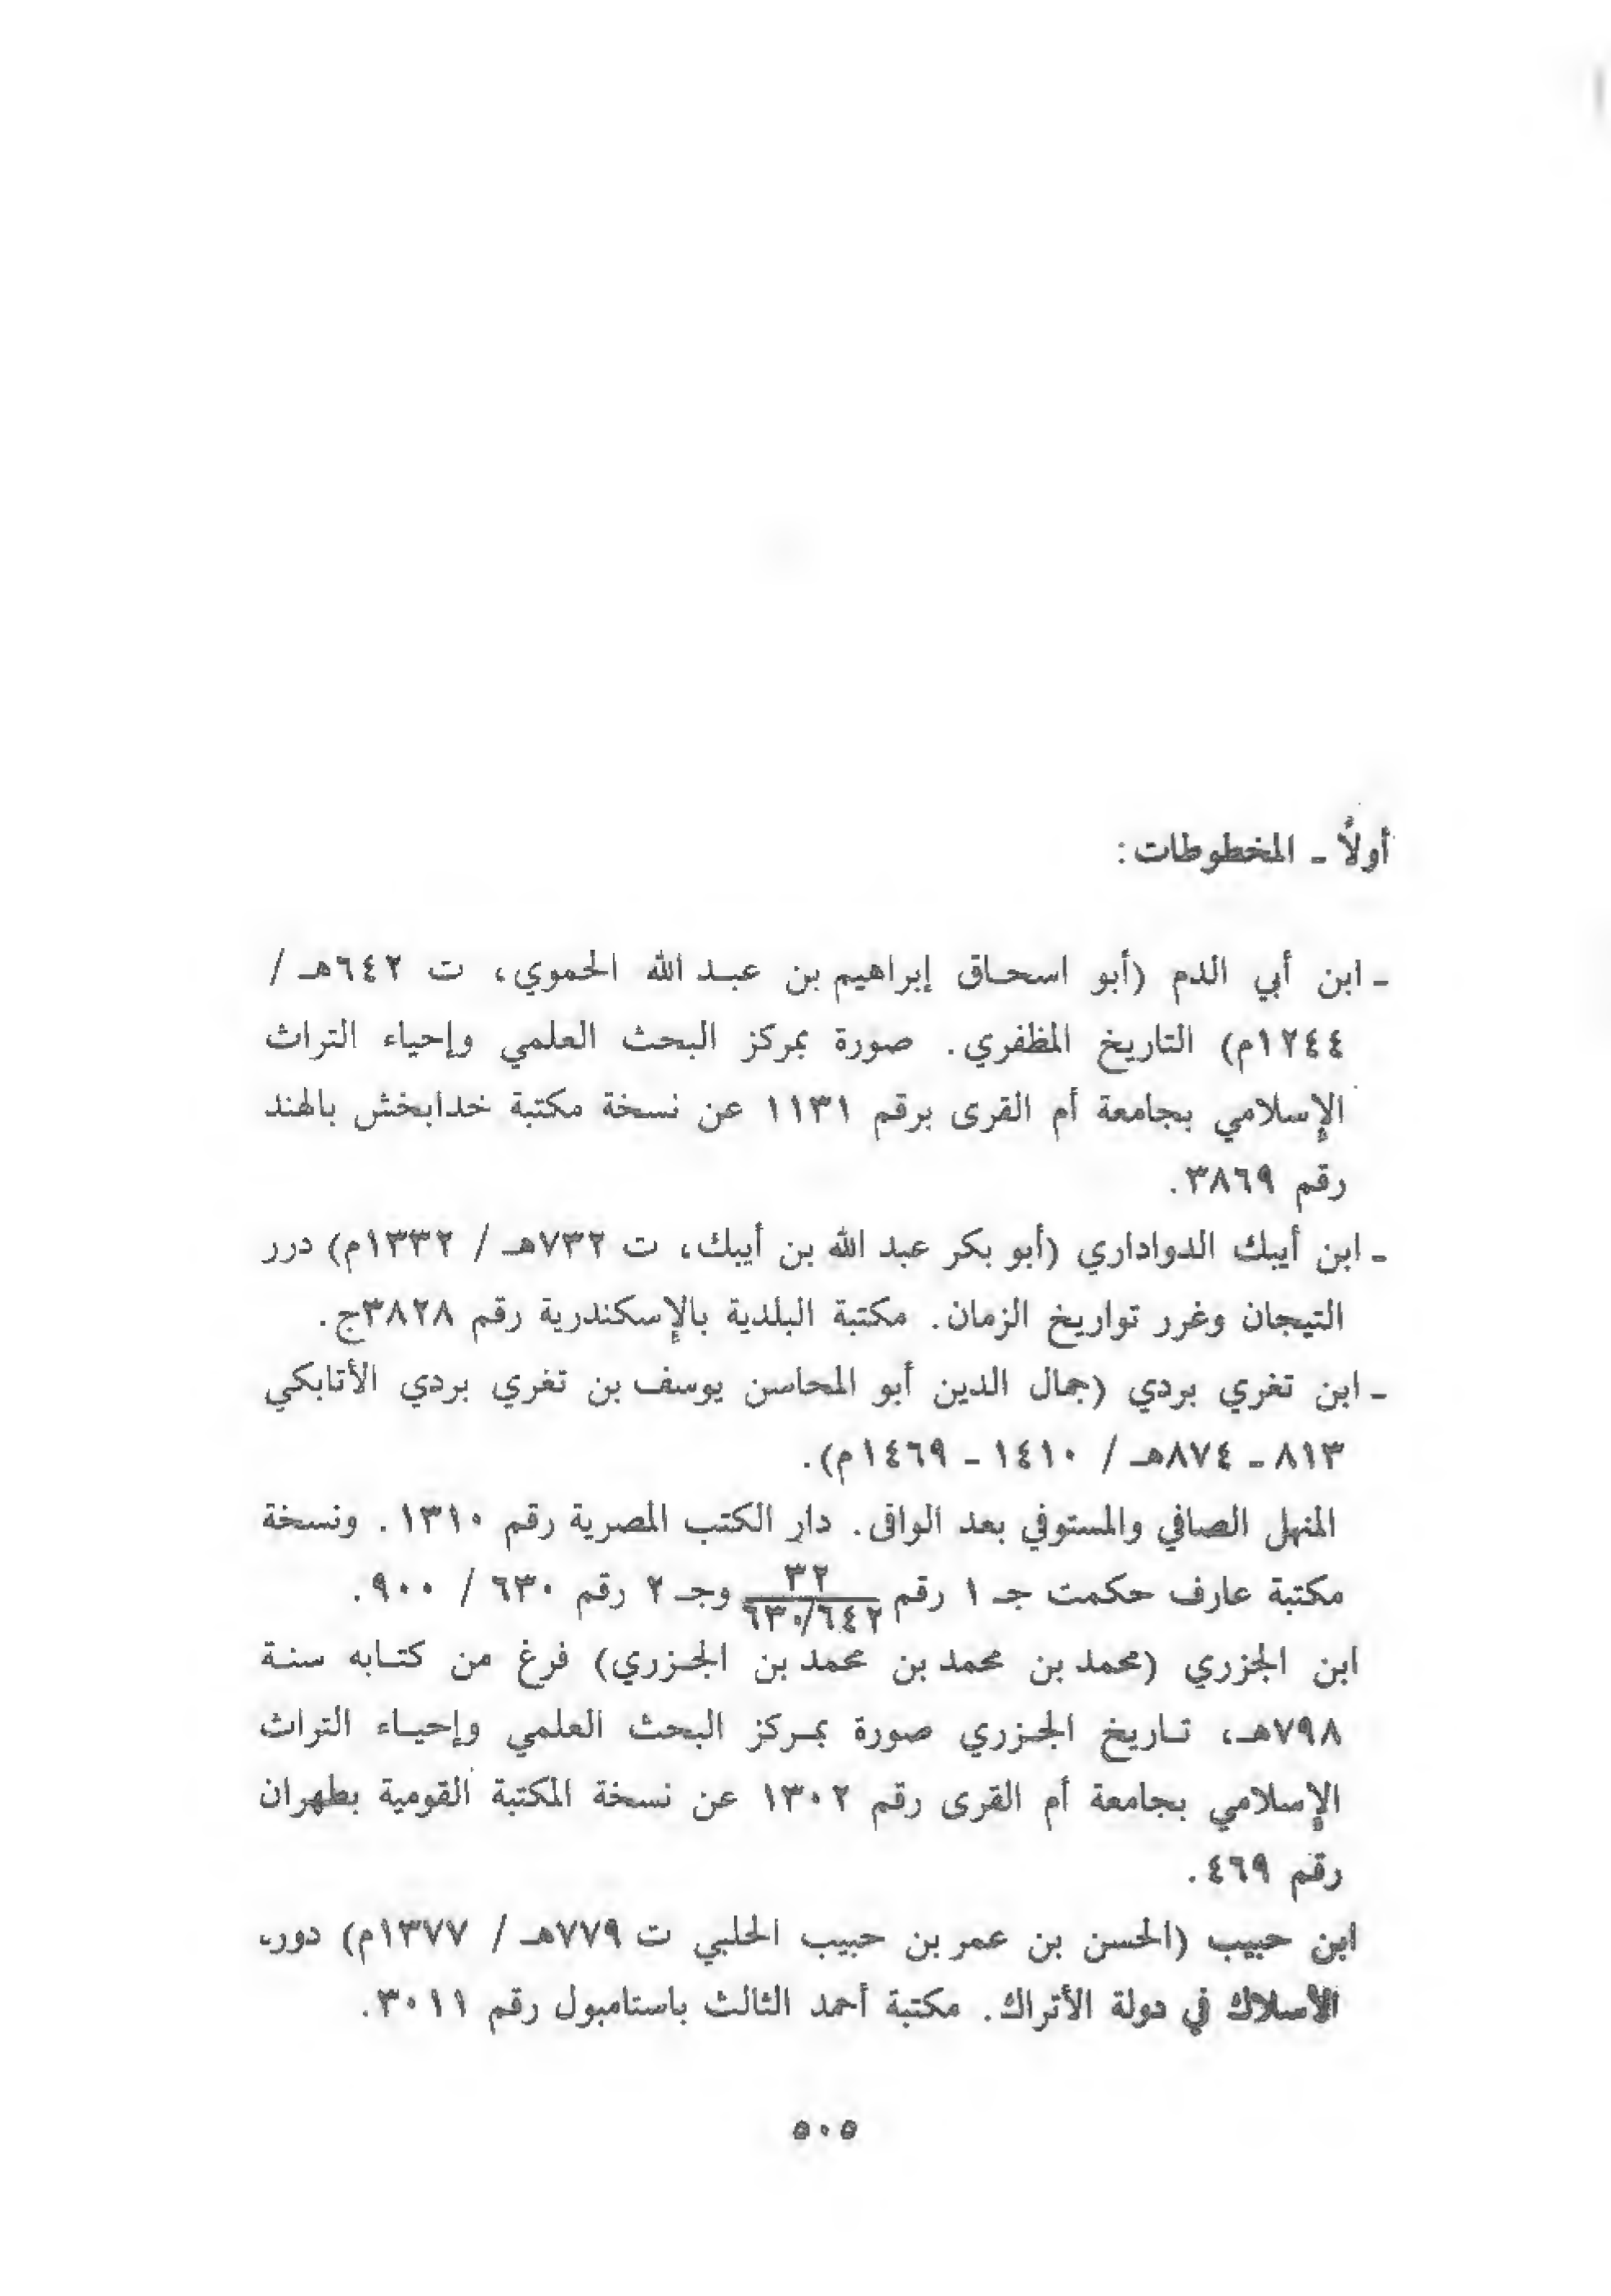 أولاً ـ المخطوطات :
ـ ابن أبي الدم (أبو اسحاق إبراهيم بن عبد الله الحموي، ت ٦٤٢هـ /
١٢٤٤م) التاريخ المظفري. صورة بمركز البحث العلمي وإحياء التراث
الإسلامي بجامعة أم القرى برقم ١١٣١ عن نسخة مكتبة خدابخش بالهند
رقم ٣٨٦٩.
ـ ابن أيبك الدواداري (أبو بكر عبد الله بن أيبك، ت ٧٣٢هـ / ١٣٣٢م) درر
التيجان وغرر تواريخ الزمان. مكتبة البلدية بالإسكندرية رقم ٣٨٢٨ج.
ـ ابن تغري بردي (جمال الدين أبو المحاسن يوسف بن تغري بردي الأتابكي
٨١٣ ـ ٨٧٤هـ / ١٤١٠ ـ ١٤٦٩م).
المنهل الصافي والمستوفي بعد الواقى. دار الكتب المصرية رقم ١٣١٠. ونسخة
مكتبة عارف حكمت جـ ١ رقم ٣٢ / ٦٣٠/٦٤٢ وجـ ٢ رقم ٦٣٠ / ٩٠٠.
ابن الجزري (محمد بن محمد بن محمد بن الجزري) فرغ من كتابه سنة
٧٩٨هـ، تاريخ الجزري صورة بمركز البحث العلمي وإحياء التراث
الإسلامي بجامعة أم القرى رقم ١٣٠٢ عن نسخة المكتبة القومية بطهران
رقم ٤٦٩.
ابن حبيب (الحسن بن عمر بن حبيب الحلبي ت ٧٧٩هـ / ١٣٧٧م) دور،
الأسلاك في دولة الأتراك. مكتبة أحمد الثالث باستامبول رقم ٣٠١١.
٥٠٥